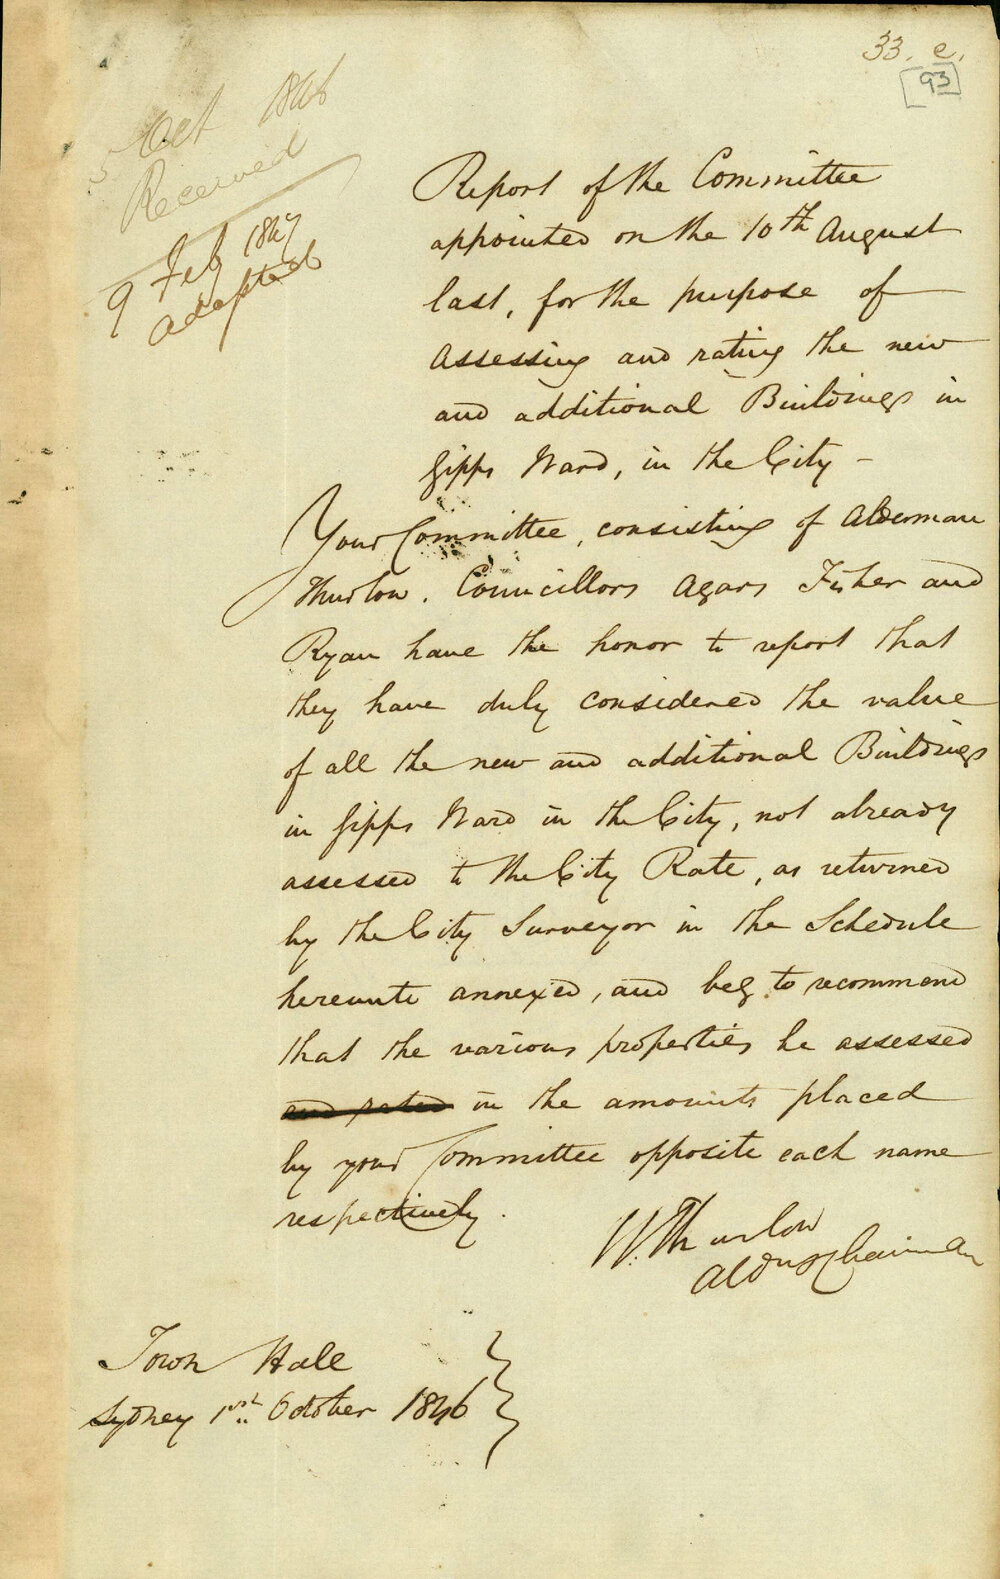 33. e.
93
5 Oct 1846
Received
9 Feb 1847
adopted
Report of the Committee
appointed on the 10th August
last, for the purpose of
Assessing and rating the new
and additional Buildings in
Gipps Ward, in the City –
Your Committee, consisting of Alderman
Thurlow. Councillors Agars Fisher and
Ryan have the honor to report that
they have duly considered the value
of all the new and additional Buildings
in Gipps Ward in the City, not already
assessed to the City Rate, as returned
by the City Surveyor in the Schedule
hereunto annexed, and beg to recommend
that the various properties be assessed
and rated in the amounts placed
by your Committee opposite each name
respectively.
W. Thurlow
Chairman
Town Hall
Sydney 1st October 1846